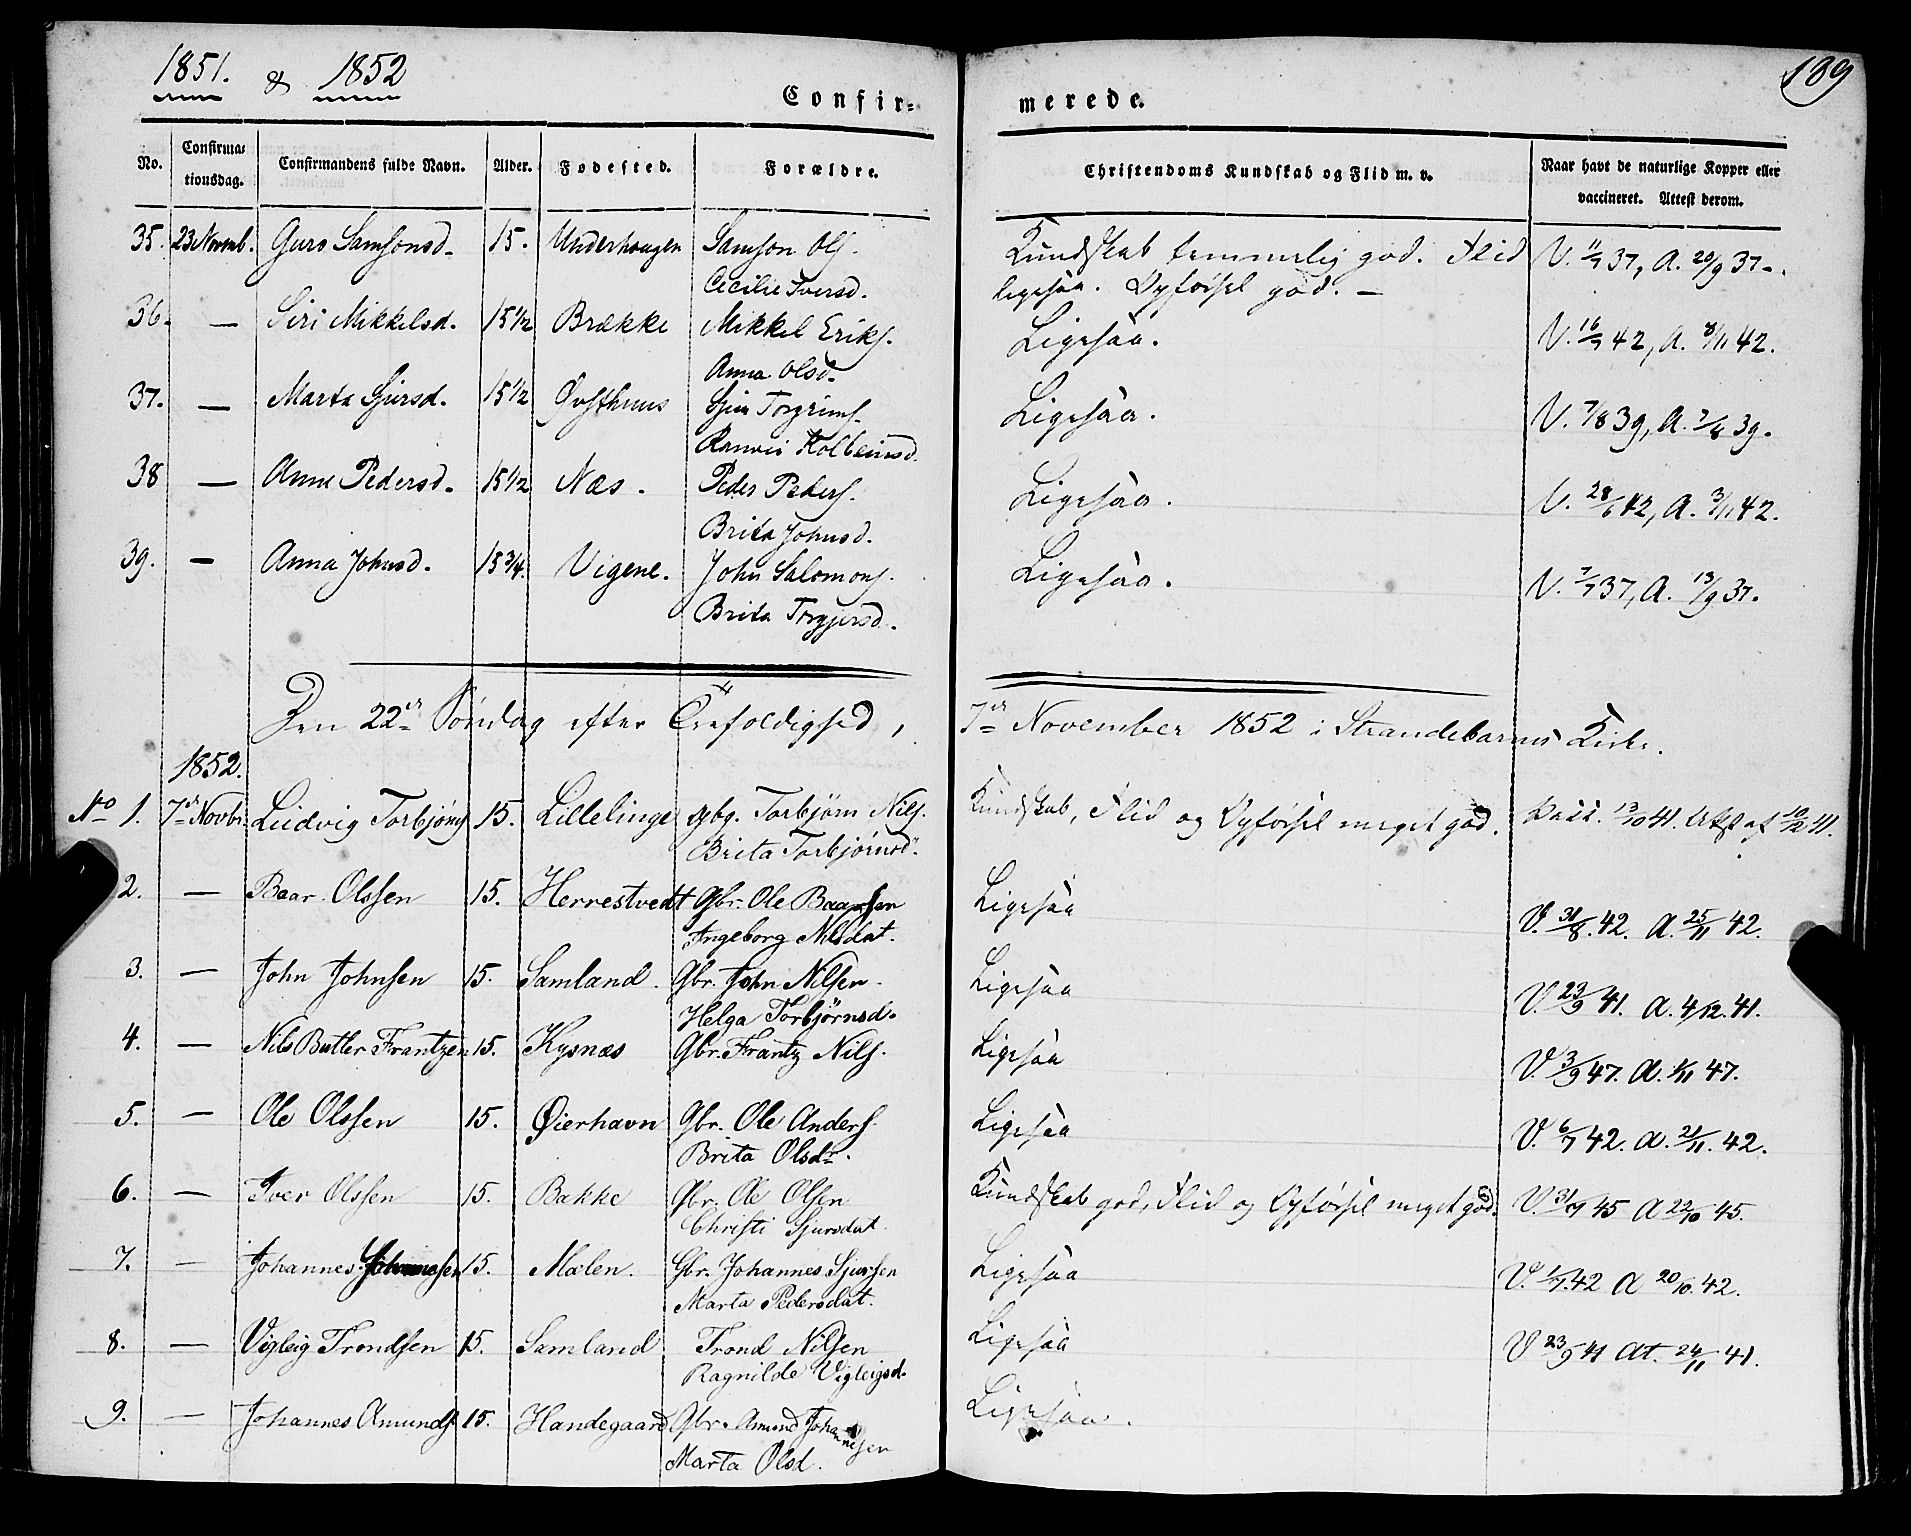 1851. & 1852
189
Confir=
merede.
No.
Confirma=
tionsdag.
Confirmandens fulde Navn.
Alder.
Fødested.
Forældre.
Christendoms Kundskab og Flid m. v.
Naar havt de naturlige Kopper eller
vaccineret. Attest derom.
35. 23 Novemb. Guro Samsonsd. 15. Underhaugen Samson Ols. Kundskab temmelig god. Flid V. 11/7 37, A. 20/9 37.
Cecilie Iversd. ligesaa. Opførsel god. —
36. — Siri Mikkelsd. 15 1/2 Brække Mikkel Eriks. Ligesaa. V. 16/7 42, A. 8/11 42.
Anna Olsd.
37. — Marta Sjursd. 15 1/2 Øvsthuus Sjur Torgrims. Ligesaa. V. 7/8 39, A. 39.
Ranvei Kolbeinsd.
38 — Anne Pedersd. 15 1/2 Næs. Peder Peders. Ligesaa. V. 28/6 42, A. 3/11 42.
Brita Johnsd.
39. — Anna Johnsd. 15 3/4. Vigene. John Salomons. Ligesaa. V. 7/7 37, A. 13/9 37.
Brita Torgjersd.
Den 22de Søndag efter Trefoldighed, 7de November 1852 i Strandebarms Kirke.
1852.
No 1. 7de Novbr. Ludvig Torbjørns 15. Lillelinge gbg. Torbjørn Nils. Kundskab, Flid og Opførsel meget god. Vacc. 13/10 41. Attest af 10/12 41.
Brita Torbjørnsd.
2. — Baar Olssen 15. Herrestvedt Gbr. Ole Baarsen Ligesaa V. 31/8. 42. A. 25/11 42.
Ingeborg Nilsdat.
3. — John Johnsen 15. Samland. Gbr. John Nilsen. Ligesaa V. 23/9 41. A. 4/12. 41.
Helga Torbjørnsd.
4. — Nils Butler Frantzen 15. Kysnæs Gbr. Frantz Nils. Ligesaa V. 3/9 47. A. 1/11 47.
5. — Ole Olssen 15. Øierhavn Gbr. Ole Anders. Ligesaa V. 6/7 42. A. 21/11. 42.
Brita Olsdr.
6. — Iver Olssen 15. Bakke Gbr. Ole Olsen Kundskab god, Flid og Opførsel meget god. V. 31/7 45 A 22/10 45.
Christi Sjursdat.
7. — Johannes Johannesen 15. Mælen. Gbr. Johannes Sjursen Ligesaa V. 1/7. 42 A 20/10. 42.
Marta Pedersdat.
8. — Vigleig Trondsen 15. Samland Trond Nilsen Ligesaa V 23/9 41 At. 24/11 41.
Ragnilde Vigleigsd.
9. — Johannes Amunds. 15. Handegaard Gbr. Amund Johannesen Ligesaa.
Marta Olsd.